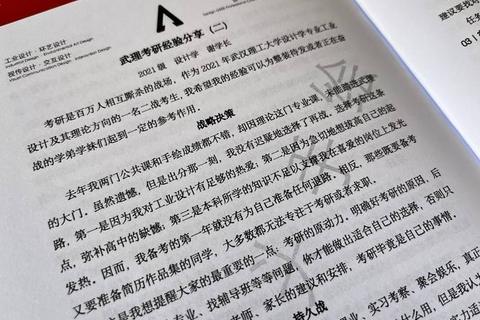 工业设计·环艺设计
Industrial Design · Environmental Art Design
视传设计·交互设计
Visual Communication Design · Interaction Design
武理考研经验分享（二）
2021级 设计学 谢学长
考研是百万人相互厮杀的战场，作为2021年武汉理工大学设计学专业工业
设计及其理论方向的一名二战考生，我希望我的经验可以为整装待发或者正在奋
战的学弟学妹们起到一定的参考作用。
战略决策
去年我两门公共课和手绘成绩都不错，却因理论这门专业课，未能踏进武理
的大门。虽然遗憾，但是出分那一刻，我没有迟疑地选择了再战。选择考研这条
路，第一是因为我对工业设计有足够的热爱，第二是因为急切地想拔高自己的起
点，弥补高中的缺憾，第三是本科所学的知识不足以支撑我在喜爱的岗位上发光
发热。因而，我备考的第一年就没有为自己准备任何退路。相反，那些既要备考
又要准备简历作品集的同学，大多数都无法专注于考研或者求职。
这是我想提醒大家的最重要的一点：考研的原动力。明确好考研的原因，后
专业、找辅导班等等问题，你才能做出适合自己的选择，否则只
老师、家长的建议和安排，考研毕竟是自己的事情，
持久战
业、实习考察、聚会娱乐，真正
什么用，但是我认
建议要找
任务
03